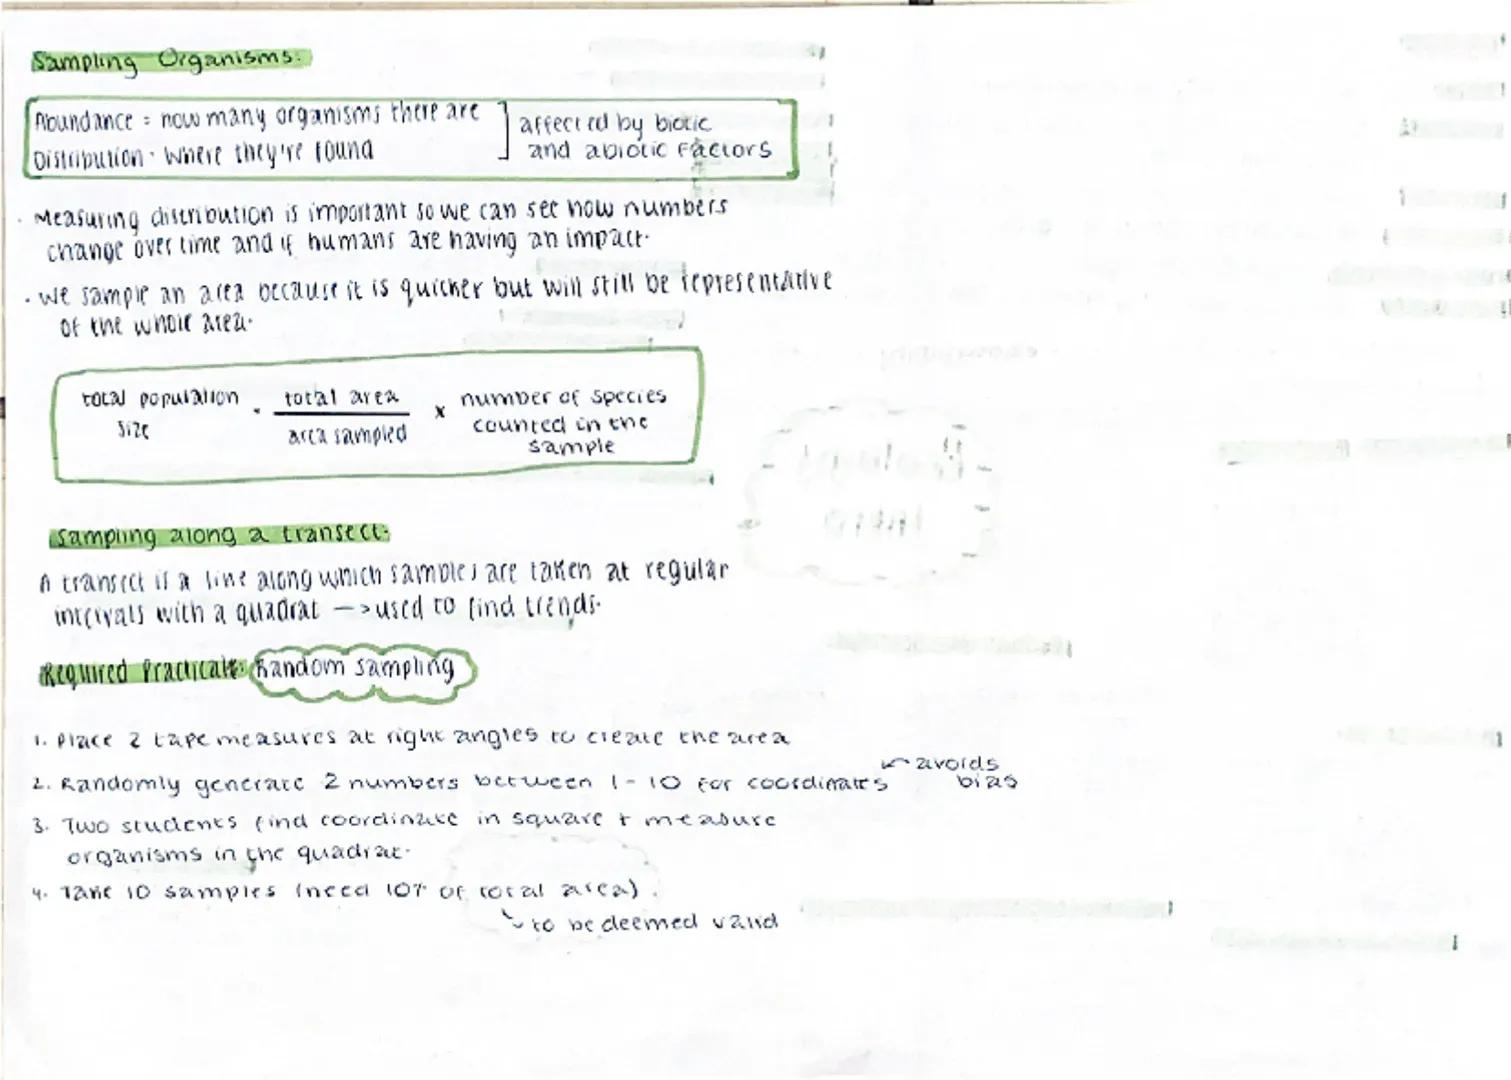 Sampling Organisms:
Abundance = how many organisms there are
Distribution = where they're found
affected by biotic
and abiotic factors
· Measuring distribution is important so we can see how numbers
change over time and if humans are having an impact.
· We sample an area because it is quicker but will still be representative
of the whole area.
total population size = total area / area sampled x number of species counted in the sample
Sampling along a transect:
A transect is a line along which samples are taken at regular
intervals with a quadrat —> used to find trends.
Required Practical: Random sampling
1. Place 2 tape measures at right angles to create the area
2. Randomly generate 2 numbers between 1 - 10 for coordinates
avoids
bias
3. Two students find coordinate in square + measure
organisms in the quadrat.
4. Take 10 samples (need 10% of total area).
to be deemed valid